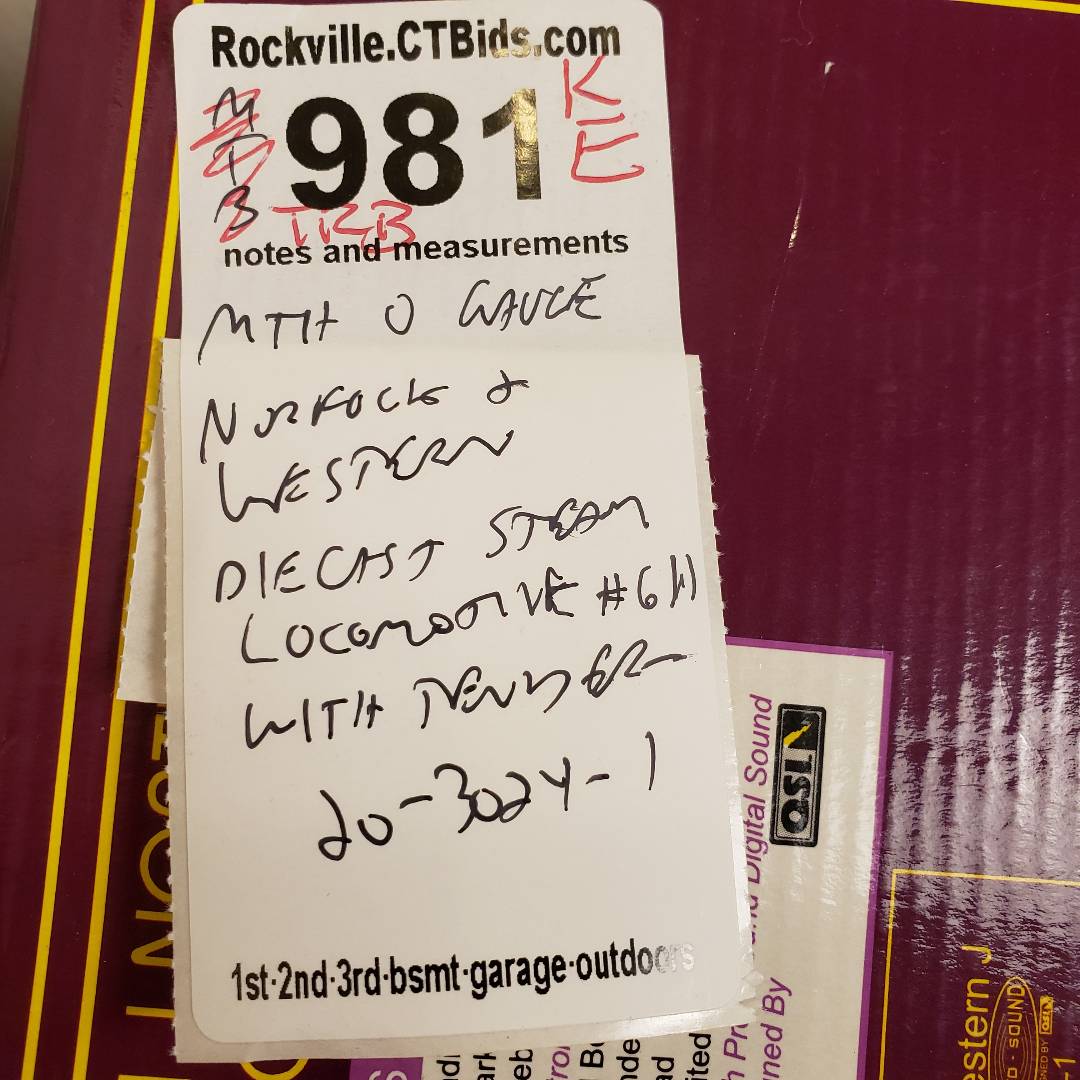 Rockville.CTBids.com
981
K
E
M
T
B
TRB
notes and measurements
MTH O GAUGE
NORFOLK &
WESTERN
DIECAST STEAM
LOCOMOTIVE #611
WITH TENDER
20-3024-1
1st·2nd·3rd·bsmt·garage·outdoors
Digital Sound
QSI
estern J
SOUND
QSI
-1